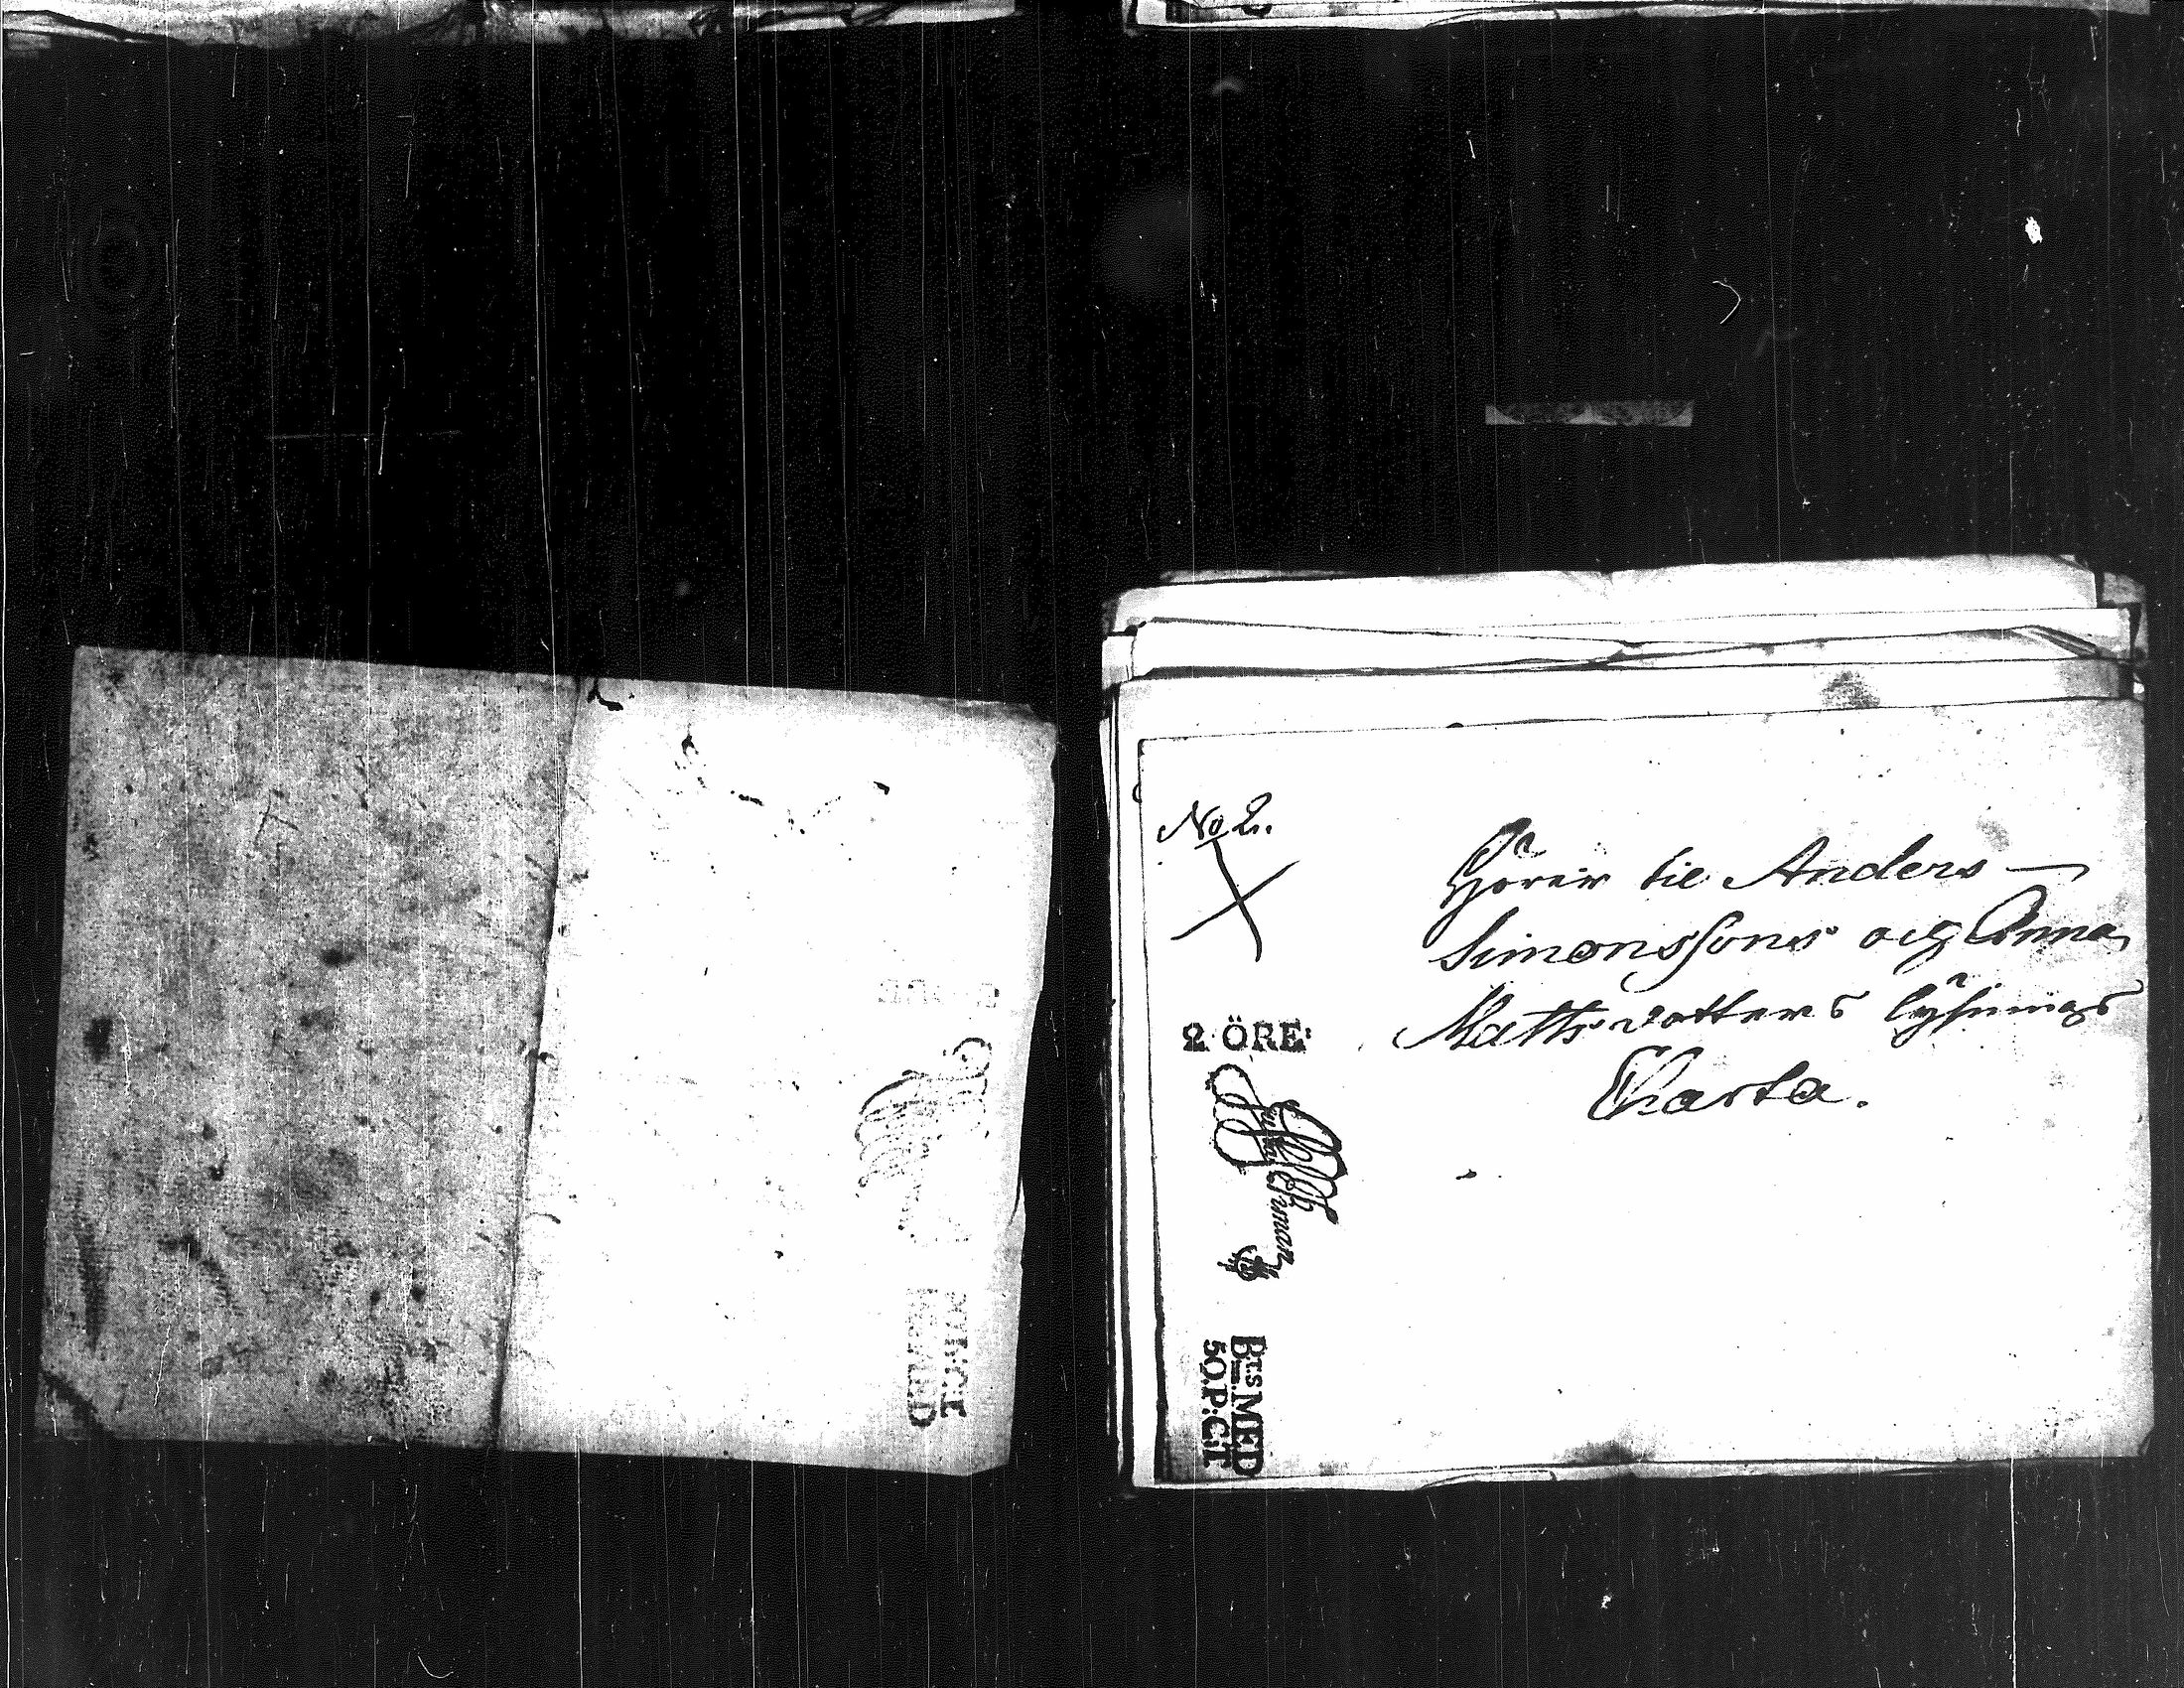 No 2.
Hörer til Anders —
Simonssons ocg Anna
Matts dotters lysnings
Charta.
2 ÖRE:
B:ts MED
50.P:C:T